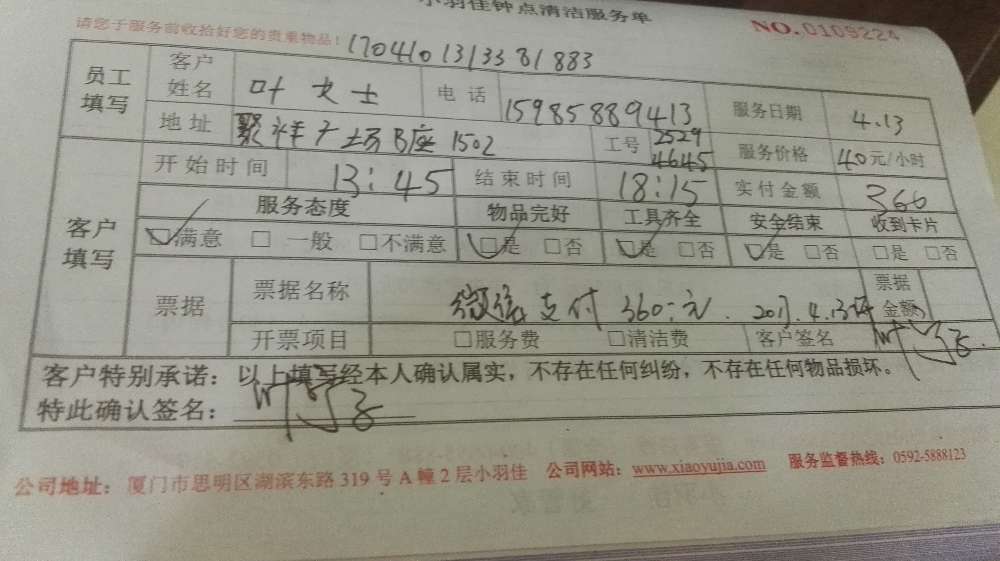 小羽佳钟点清洁服务单
请您于服务前收拾好您的贵重物品! NO.0109224
170410131338 1883
员工填写 客户姓名 叶女士 电话 15985889413 服务日期 4.13
地址 聚祥广场B座1502 工号 2529 4645 服务价格 40元/小时
客户填写 开始时间 13:45 结束时间 18:15 实付金额 360
服务态度 物品完好 工具齐全 安全结束 收到卡片
☑满意 □一般 □不满意 ☑是 □否 ☑是 □否 ☑是 □否 □是 □否
票据 票据名称 微信支付 360.元. 2017.4.13 票据金额
开票项目 □服务费 □清洁费 客户签名
客户特别承诺：以上填写经本人确认属实，不存在任何纠纷，不存在任何物品损坏。
特此确认签名：
公司地址：厦门市思明区湖滨东路319号A幢2层小羽佳 公司网站：www.xiaoyujia.com 服务监督热线：0592-5888123